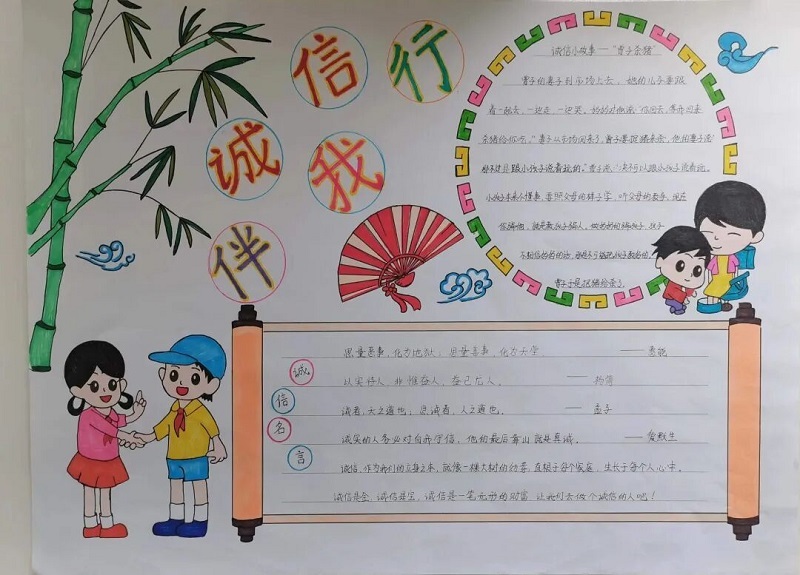 诚信
伴我行
诚信小故事—"曾子杀猪"
曾子的妻子到市场上去，她的儿子要跟
着一起去，一边走，一边哭。妈妈对他说:"你回去，等我回来
杀猪给你吃。"妻子从市场回来了，曾子要捉猪来杀，他的妻子
那不过是跟小孩子说着玩的。"曾子说:"决不可以跟小孩子说着玩。
小孩子本来不懂事，要照父母的样子学，听父母的教导。现在
你骗他，就是教孩子骗人。做妈妈的骗孩子，孩子
不相信妈妈的话，那是不可能把孩子教好的。
曾子于是把猪给杀了。
诚信名言
思量恶事，化为地狱；思量善事，化为天堂 —— 惠能
以实待人，非惟益人，益己尤大。 —— 杨简
诚者，天之道也；思诚者，人之道也。 —— 孟子
诚实的人务必对自己守信，他的最后靠山就是真诚。 —— 爱默生
诚信，作为我们的立身之本，就像一棵大树的幼苗，植根于各个家庭，生长于每个人心中。
诚信是金，诚信是宝，诚信是一笔无形的财富，让我们去做个诚信的人吧！